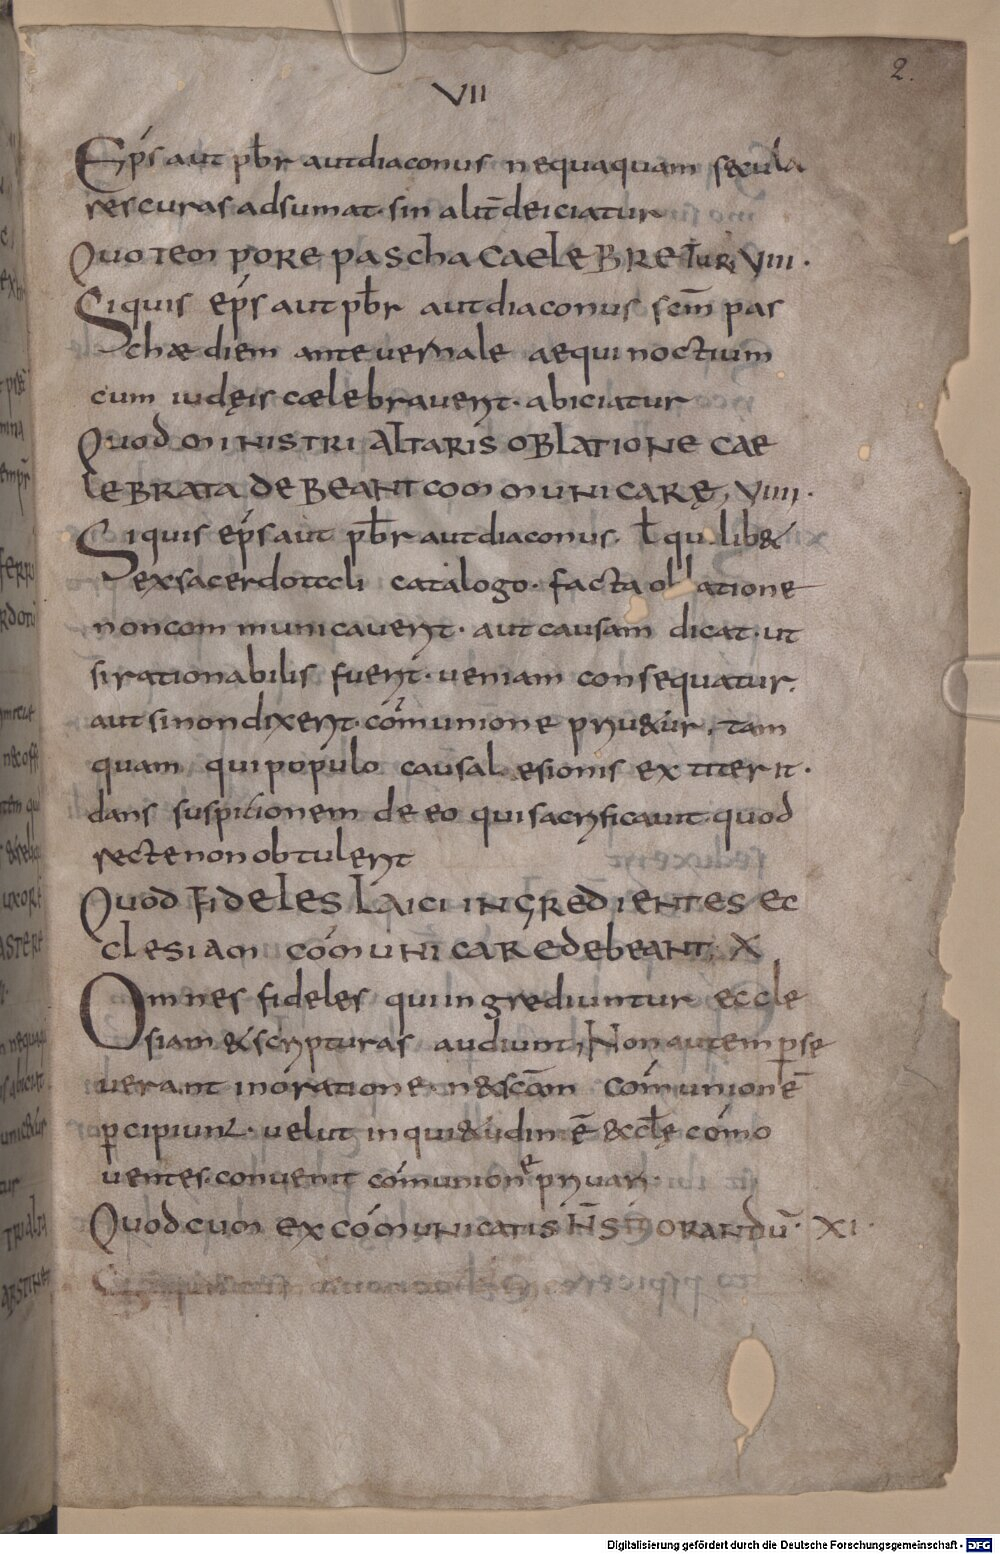 2.
VII
Ep̄s aut pb̄r aut diaconus nequaquam secula
res curas adsumat· sin alit̄ deiciatur
Quo tempore pascha caelebretur VIII·
Siquis ep̄s aut pb̄r aut diaconus sc̄m pas
chæ diem ante uernale aequinoctium
cum iudęis cælebrauerit· abiciatur
Quod ministri altaris oblatione cae
lebrata debeant communicare, VIIII·
Siquis ep̄s aut pb̄r aut diaconus· ł qu lib&
ex sacerdotali catalogo· facta ob atione
non communicauerit· aut causam dicat· ut
si rationabilis fuerit· ueniam consequatur.
aut si non dixerit· cōmunione priu&ur, tam
quam qui populo causa l esionis extiterit·
dans suspicionem de eo qui sacrificauit· quod
recte non obtulerit
Quod fideles laici ingredientes ec
clesiam cōmunicare debeant, X
Omnes fideles qui ingrediuntur eccle
siam & scripturas audiunt, Non autem perse
uerant in oratione· n& sc̄am cōmunionē
percipiunt· uelut inqui&udinē & ccl̄ę cōmo
uentes· conuenit cōmunione priuari·
Quod cum excōmunicatis n̄ sit orandū· XI·
Digitalisierung gefördert durch die Deutsche Forschungsgemeinschaft - DFG